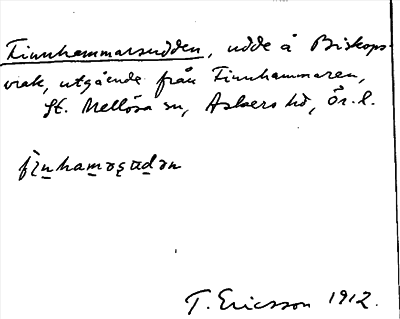 Finnhammarsudden, udde å Biskops-
vrak, utgående från Finnhammaren,
St. Mellösa sn, Askers hd, Ör. l.
T. Ericsson 1912.